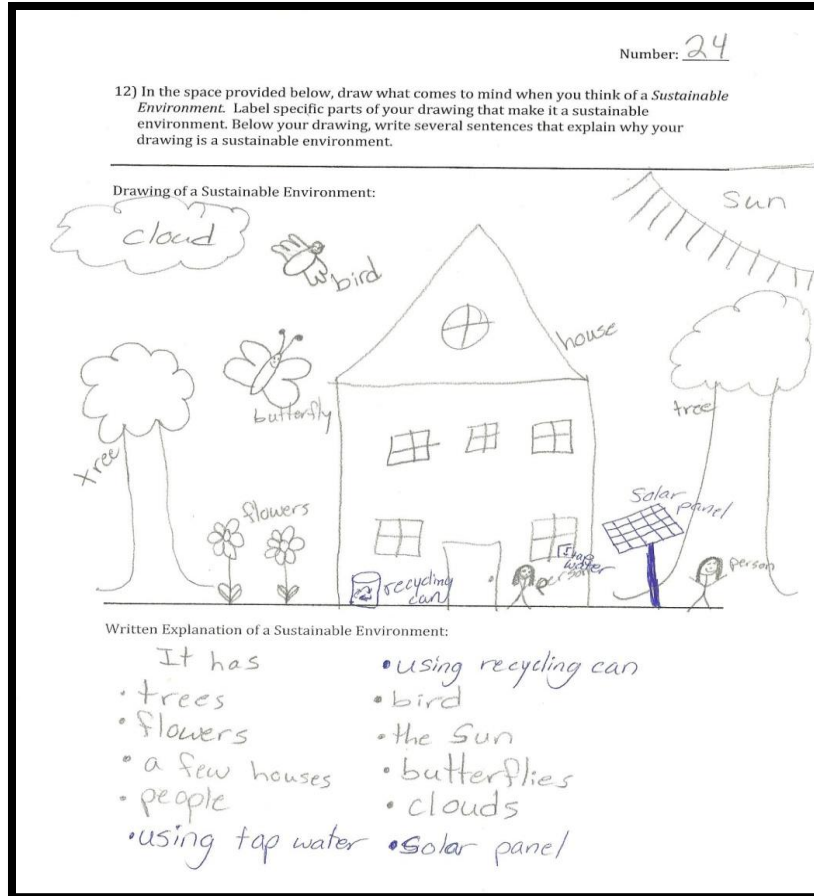 Number: 24
12) In the space provided below, draw what comes to mind when you think of a Sustainable
Environment. Label specific parts of your drawing that make it a sustainable
environment. Below your drawing, write several sentences that explain why your
drawing is a sustainable environment.
Drawing of a Sustainable Environment:
sun
cloud
bird
house
butterfly
tree
tree
flowers
Solar
panel
tap
water
person
person
recycling
can
Written Explanation of a Sustainable Environment:
It has
• trees
• flowers
• a few houses
• people
• using tap water
• using recycling can
• bird
• the Sun
• butterflies
• clouds
• Solar panel